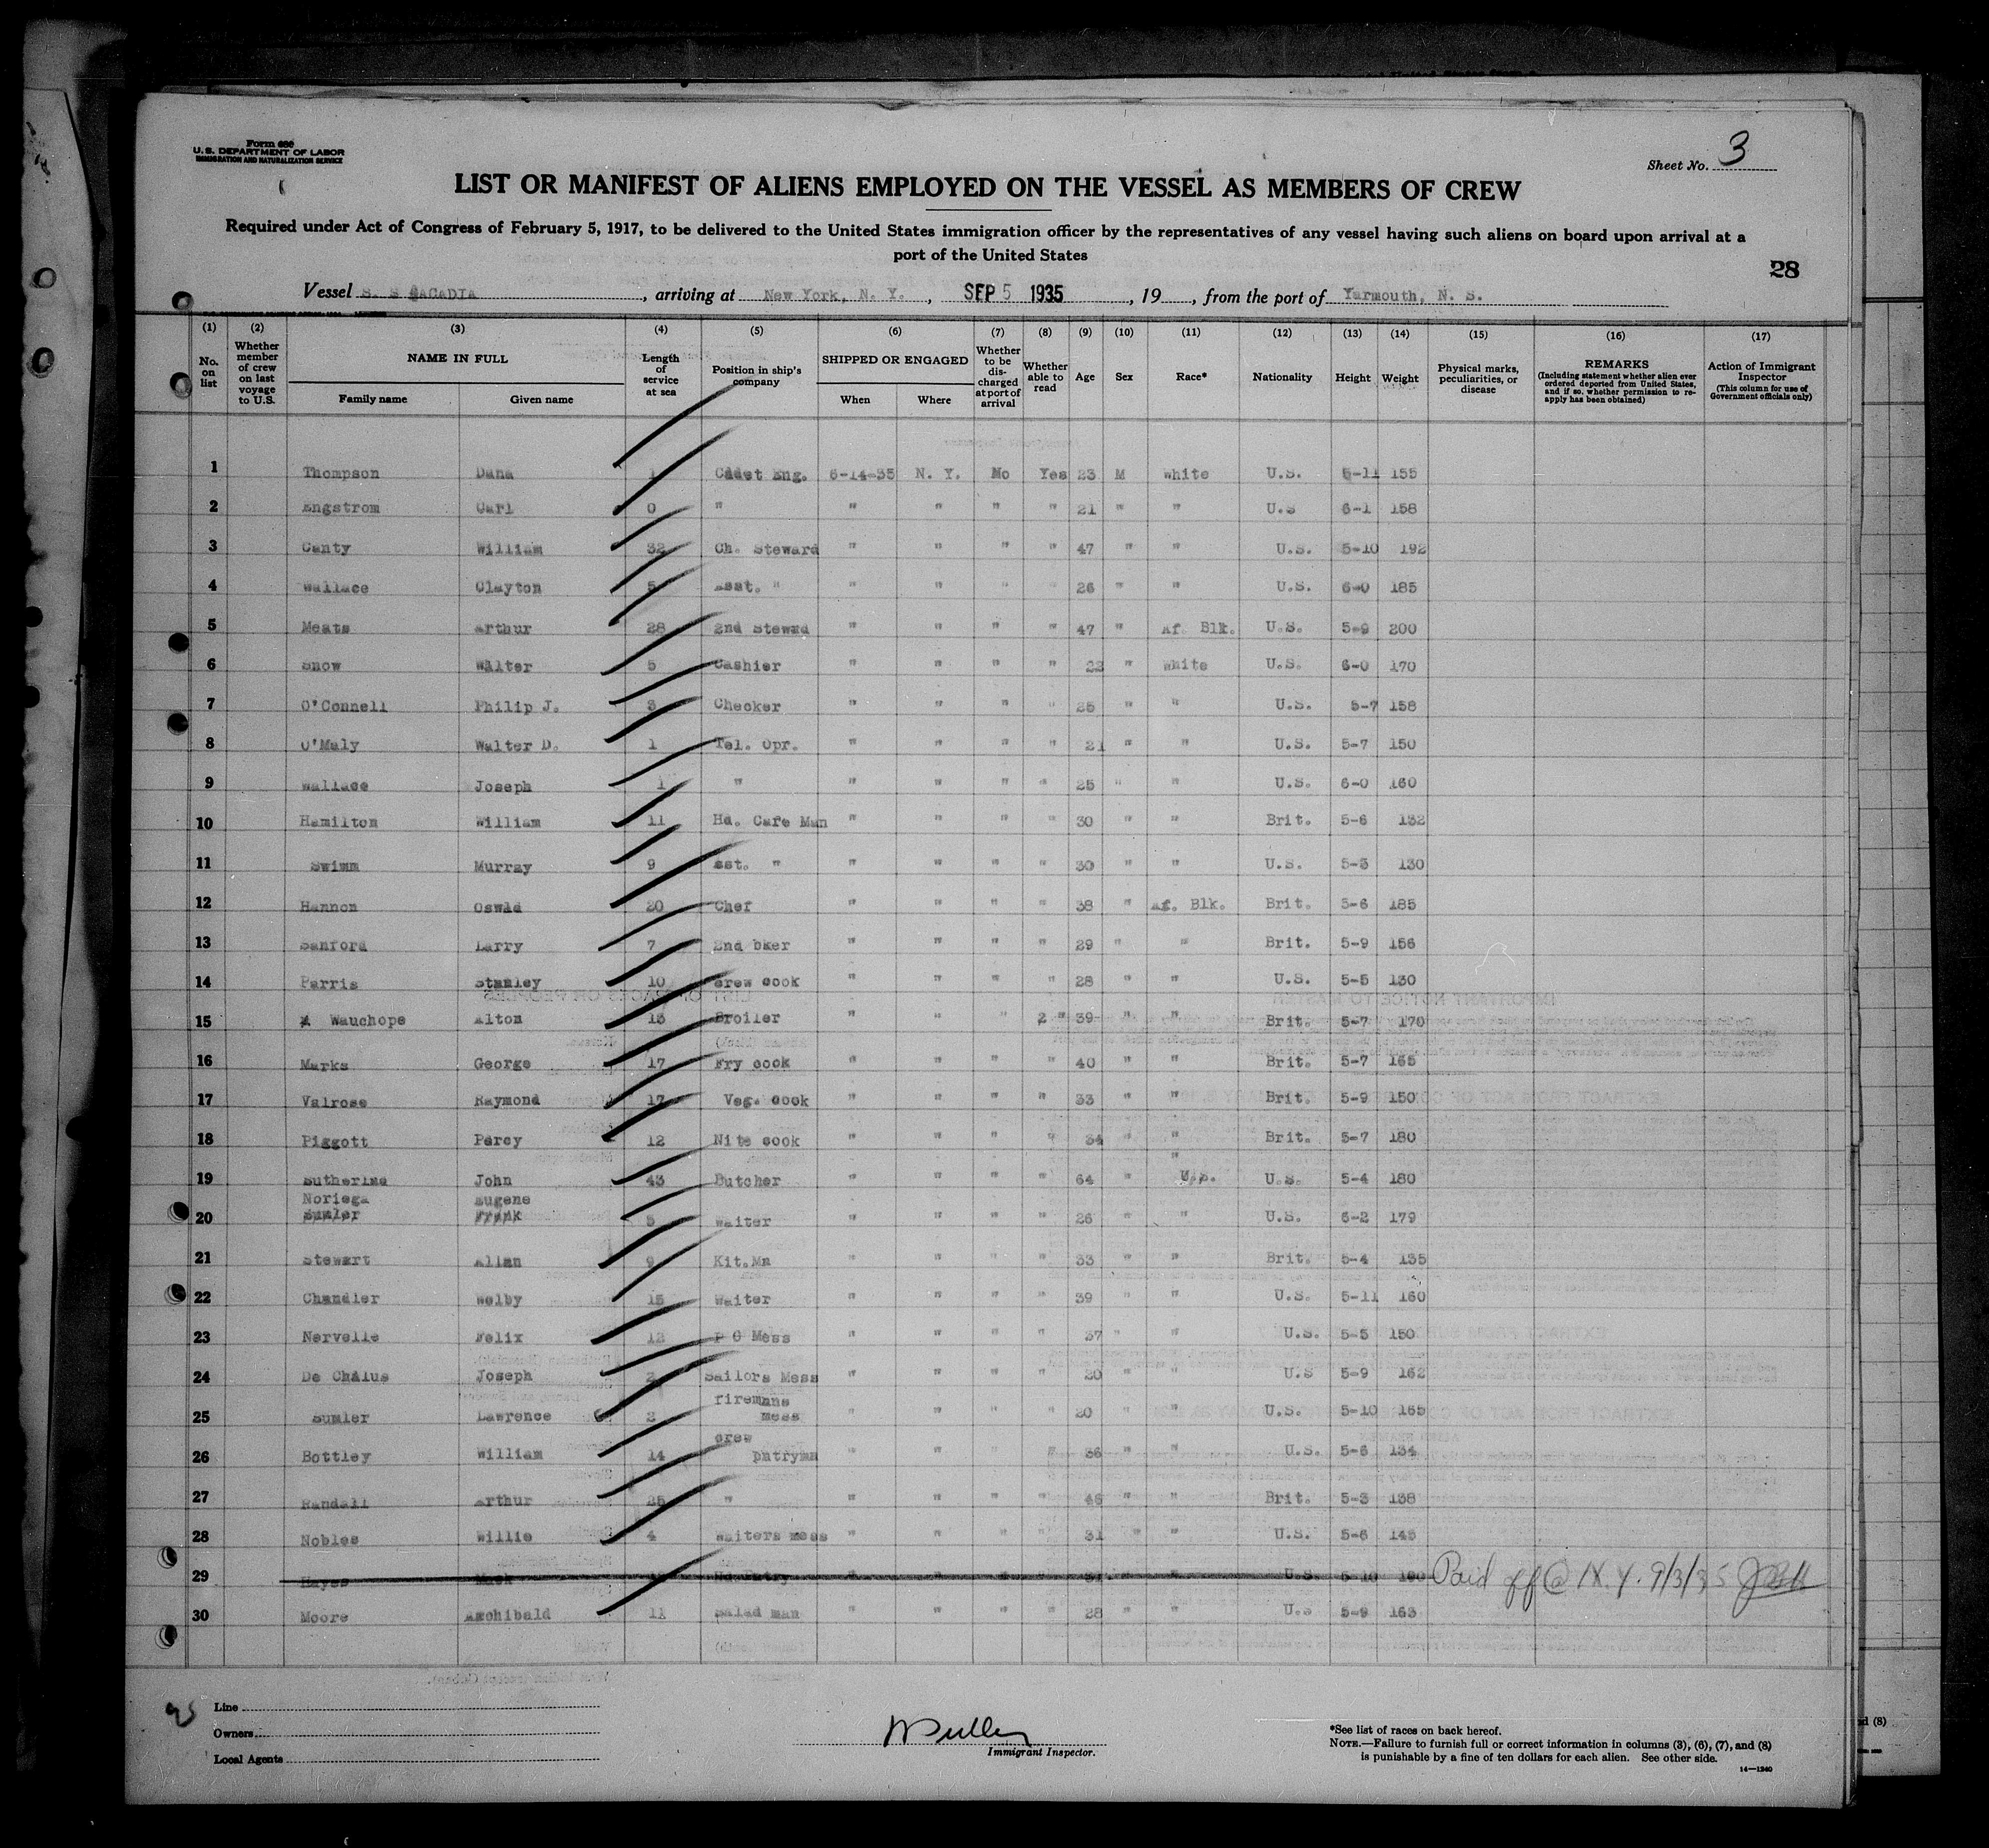 Form 680
U. S. DEPARTMENT OF LABOR
IMMIGRATION AND NATURALIZATION SERVICE
Sheet No. 3
LIST OR MANIFEST OF ALIENS EMPLOYED ON THE VESSEL AS MEMBERS OF CREW
Required under Act of Congress of February 5, 1917, to be delivered to the United States immigration officer by the representatives of any vessel having such aliens on board upon arrival at a
port of the United States
28
Vessel S. S ACADIA, arriving at New York, N. Y., SEP 5 1935, 19, from the port of Yarmouth, N. S.
(1) No. on list (2) Whether member of crew on last voyage to U.S. (3) NAME IN FULL Family name Given name (4) Length of service at sea (5) Position in ship's company (6) SHIPPED OR ENGAGED When Where (7) Whether to be discharged at port of arrival (8) Whether able to read (9) Age (10) Sex (11) Race* (12) Nationality (13) Height (14) Weight (15) Physical marks, peculiarities, or disease (16) REMARKS (Including statement whether alien ever ordered deported from United States, and if so, whether permission to re-apply has been obtained) (17) Action of Immigrant Inspector (This column for use of Government officials only)
1 Thompson Dana 1 Cadet Eng. 6-14-35 N. Y. No Yes 23 M White U.S. 5-11 155
2 Engstrom Carl 0 " " " " " 21 " " U.S 6-1 158
3 Canty William 32 Ch. Steward " " " " 47 " " U.S. 5-10 192
4 Wallace Clayton 5 Asst. " " " " " 26 " " U.S. 6-0 185
5 Meats Arthur 28 2nd Stewrd " " " " 47 " Af. Blk. U.S. 5-9 200
6 Snow Walter 5 Cashier " " " " 22 " White U.S. 6-0 170
7 O'Connell Philip J. 3 Checker " " " " 25 " " U.S. 5-7 158
8 O'Maly Walter D. 1 Tel. Opr. " " " " 21 " " U.S. 5-7 150
9 Wallace Joseph 1 " " " " " 25 " " U.S. 6-0 160
10 Hamilton William 11 Hd. Cafe Man " " " " 30 " " Brit. 5-6 132
11 Swimm Murray 9 sst. " " " " " 30 " " U.S. 5-3 130
12 Hannon Oswld 20 Chef " " " " 38 " Af. Blk. Brit. 5-6 185
13 Sanford Larry 7 2nd bker " " " " 29 " " Brit. 5-9 156
14 Parris Stanley 10 crew cook " " " " 28 " " U.S. 5-5 130
15 Wauchope Alton 13 Broiler " " " 2 " 39 " " Brit. 5-7 170
16 Marks George 17 Fry cook " " " " 40 " " Brit. 5-7 165
17 Valrose Raymond 17 Veg. cook " " " " 33 " " Brit. 5-9 150
18 Piggott Percy 12 Nite cook " " " " 34 " " Brit. 5-7 180
19 Sutherlna John 43 Butcher " " " " 64 " " U.S. U.S. 5-4 180
Noriega Eugene
20 Sumler Frank 5 Waiter " " " " 26 " " U.S. 6-2 179
21 Stewart Allan 9 Kit.Mn " " " " 33 " " Brit. 5-4 135
22 Chandler Welby 15 Waiter " " " " 39 " " U.S. 5-11 160
23 Nervelle Felix 12 P O Mess " " " " 37 " " U.S. 5-5 150
24 De Chalus Joseph 2 Sailors Mess " " " " 20 " " U.S 5-9 162
25 Sumler Lawrence 2 firemans mess " " " " 20 " " U.S. 5-10 165
26 Bottley William 14 crew pntrymn " " " " 36 " " U.S. 5-6 134
27 Randall Arthur 25 " " " " " 46 " " Brit. 5-3 138
28 Nobles Willie 4 Waiters mess " " " " 31 " " U.S. 5-6 145
29 Hayes U.S. 5-10 Paid off @ N. Y. 9/3/35 JBH
30 Moore Archibald 11 Salad man " " " " 28 " " U.S 5-9 163
Line
Owners
Local Agents
Immigrant Inspector.
*See list of races on back hereof.
NOTE.—Failure to furnish full or correct information in columns (3), (6), (7), and (8)
is punishable by a fine of ten dollars for each alien. See other side.
14—1240